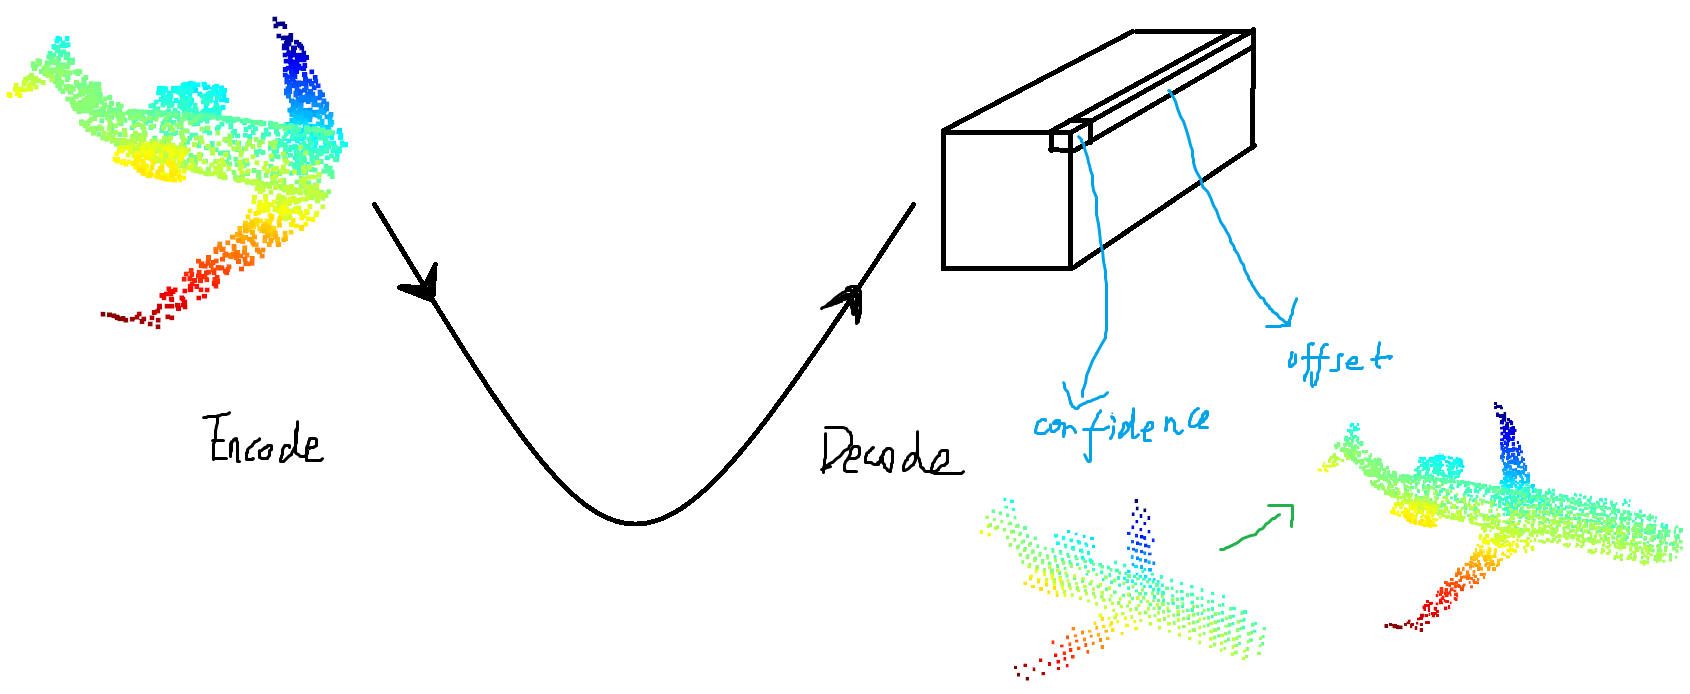 Encode
Decode
confidence
offset